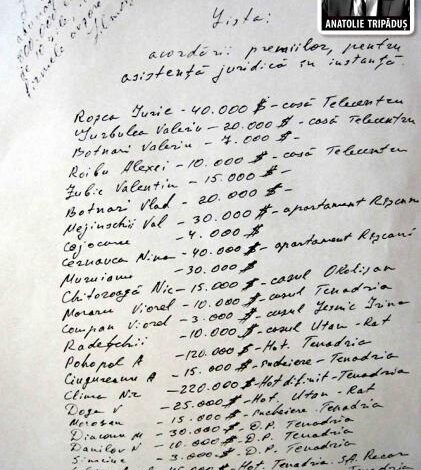 ANATOLIE TRIPĂDUȘ
Lista:
acordării premiilor, pentru
asistență juridică în instanță.
Roșca Iurie - 40.000 $ - casă Telecentru
Țurbulea Valeriu - 20.000 $ - casă Telecentru
Botnari Valeriu - 7.000 $ -
Roibu Alexei - 10.000 $ - casă Telecentru
Zubic Valentin - 15.000 $ -
Botnari Vlad - 20.000 $ -
Nejinschii Val - 30.000 $ - apartament Rîșcani
Cojocaru - 4.000 $
Cernavca Nina - 40.000 $ - apartament Rîșcani
Munianu - 30.000 $
Chitoroagă Nic - 15.000 $ - cazul
Moraru Viorel - 10.000 $ - cazul Tenadria
Compan Viorel - 3.000 $ - cazul Irina
Radețchii - 10.000 $ - cazul Utan - Rat
Pohopol A - 120.000 $ - Hot. Tenadria
Ciugureanu A - 15.000 $ - încheiere - Tenadria
Clima Nz - 220.000 $ - Hot. definit - Tenadria
Doga V - 25.000 $ - Hot. Utan - Rat
Morozan - 15.000 $ - încheiere Tenadria
Diaconu M - 30.000 $ - D.P. Tenadria
Danilov N - 10.000 $ - D.P. Tenadria
- 3.000 $ - D.P. Tenadria
$ - Hot. Tenadria. SA.